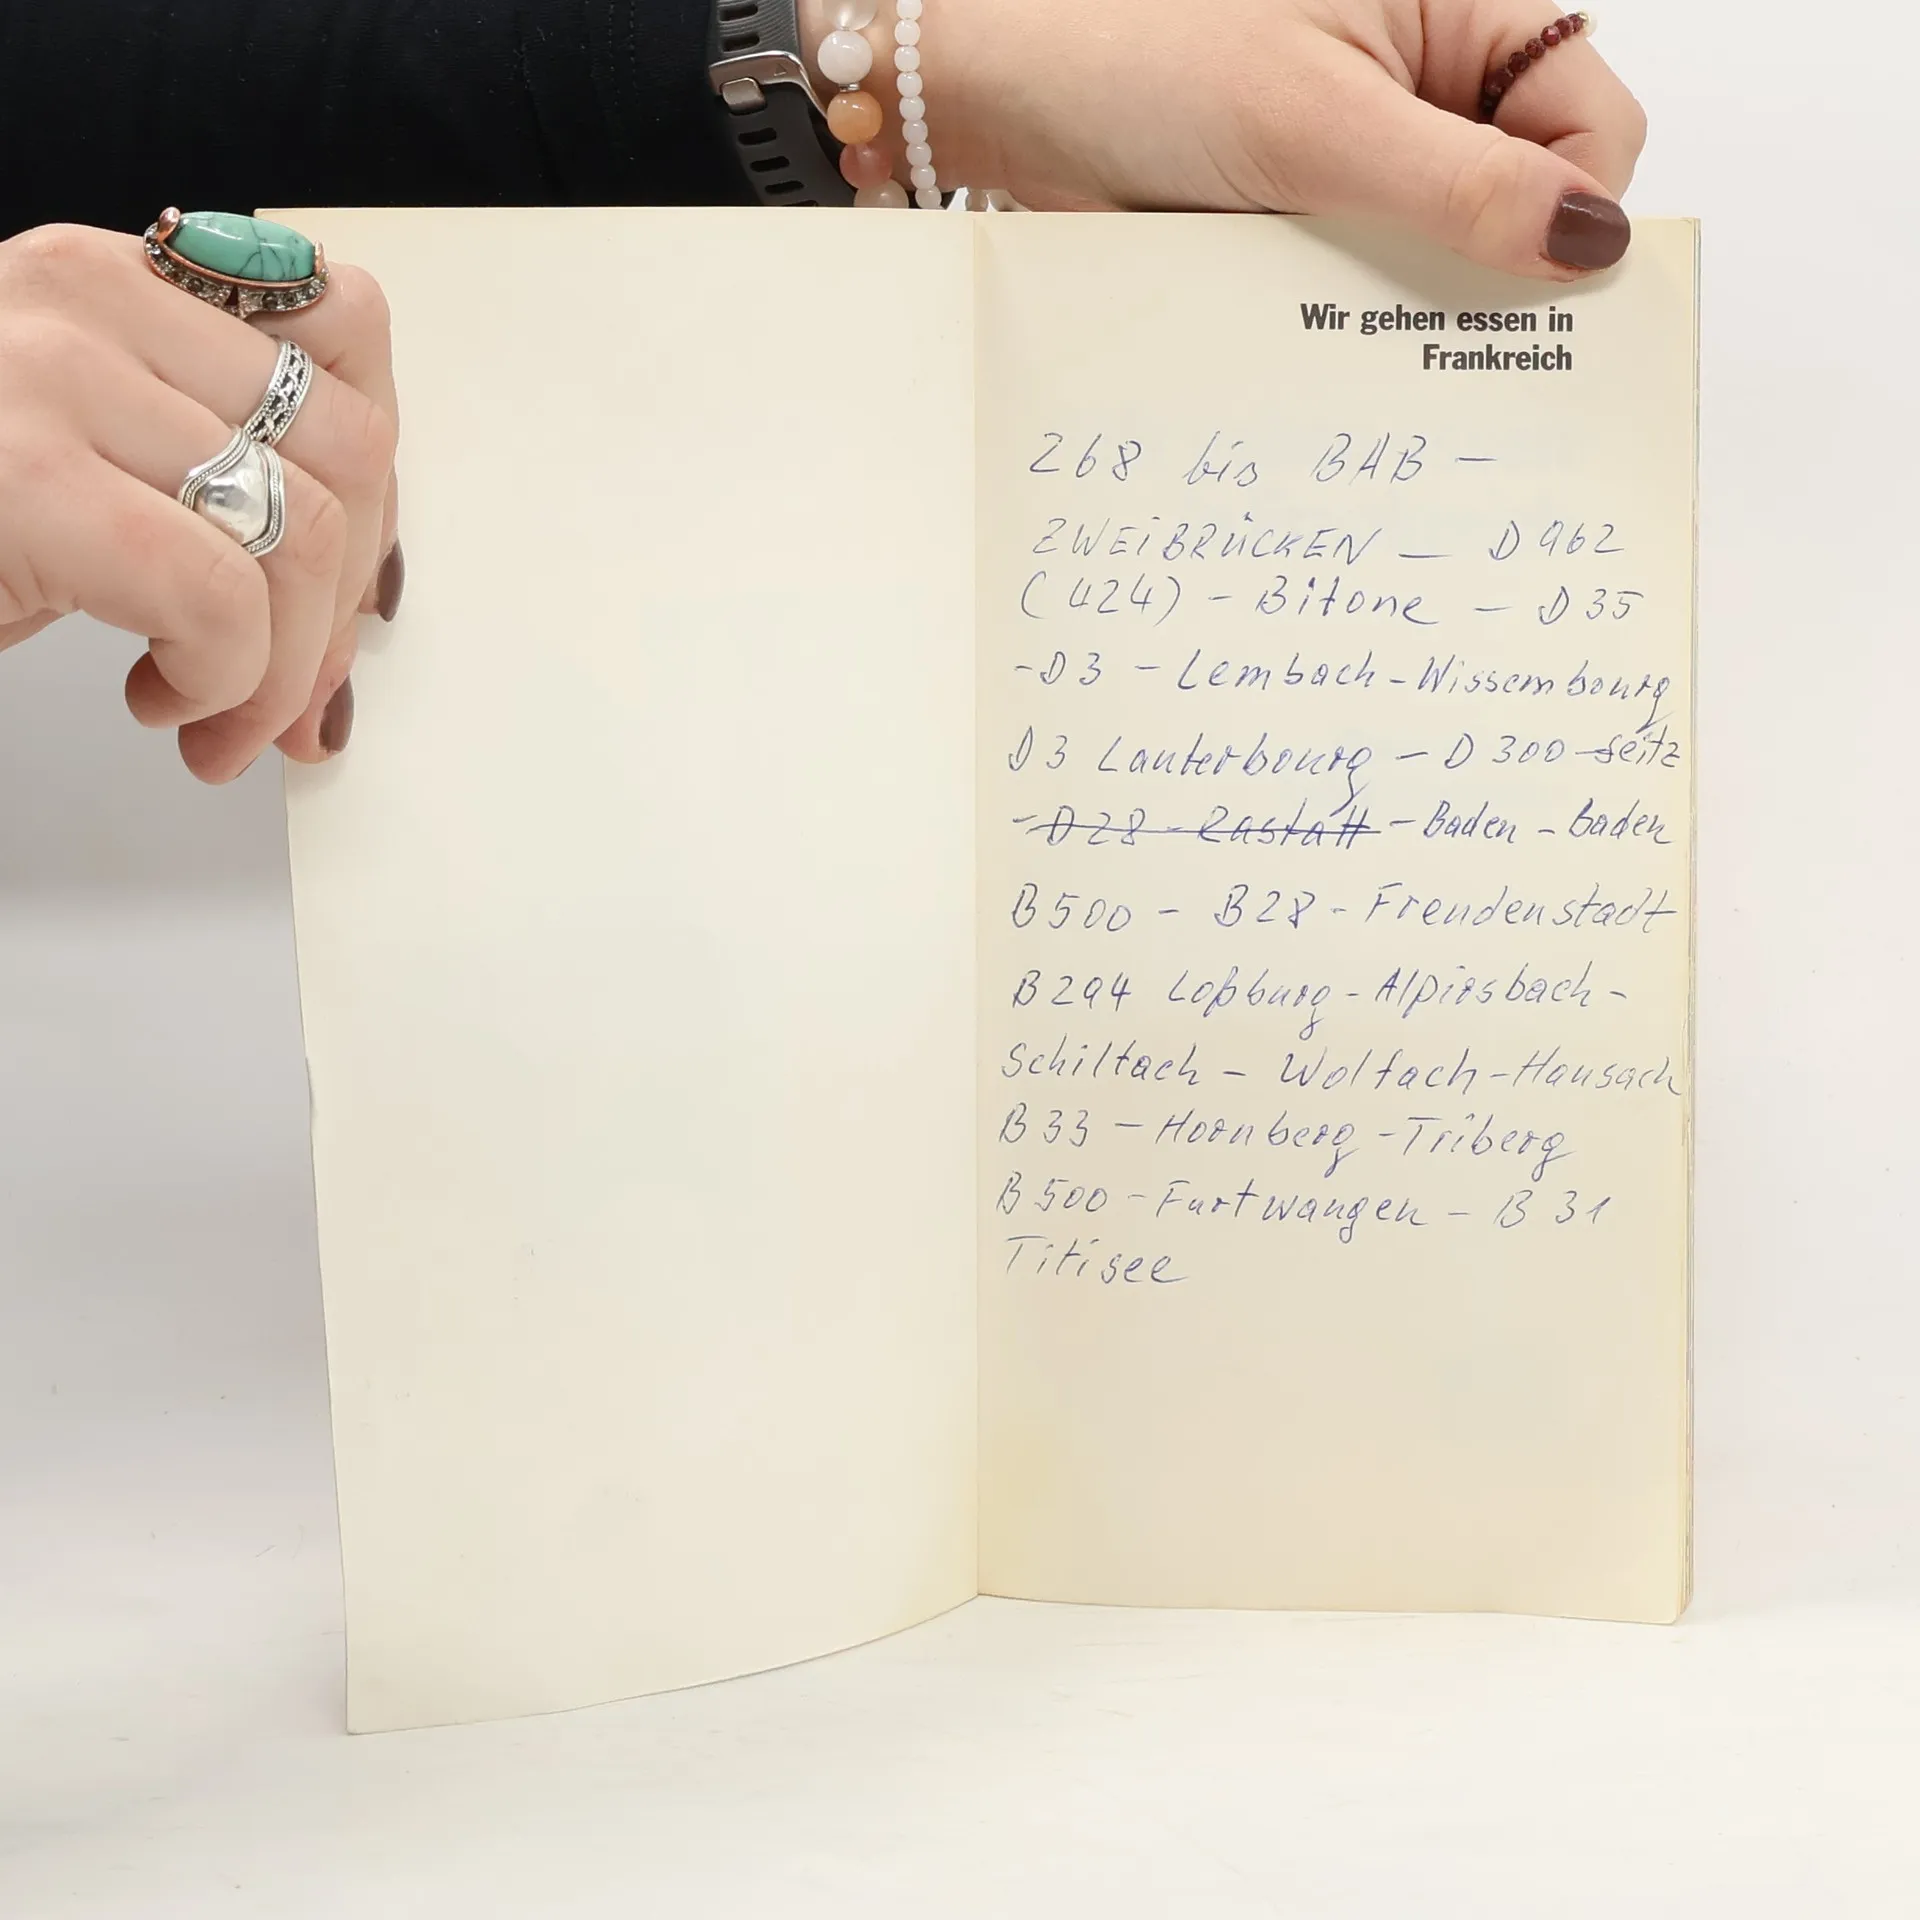 Wir gehen essen in
Frankreich
268 bis BAB -
ZWEIBRÜCKEN - D 962
(424) - Bitone - D 35
- D 3 - Lembach - Wissembourg
D 3 Lauterbourg - D 300 - Seitz
- D 28 - Rastatt - Baden - Baden
B 500 - B 28 - Freudenstadt
B 294 Loßburg - Alpirsbach -
Schiltach - Wolfach - Hausach
B 33 - Hornberg - Triberg
B 500 - Furtwangen - B 31
Titisee